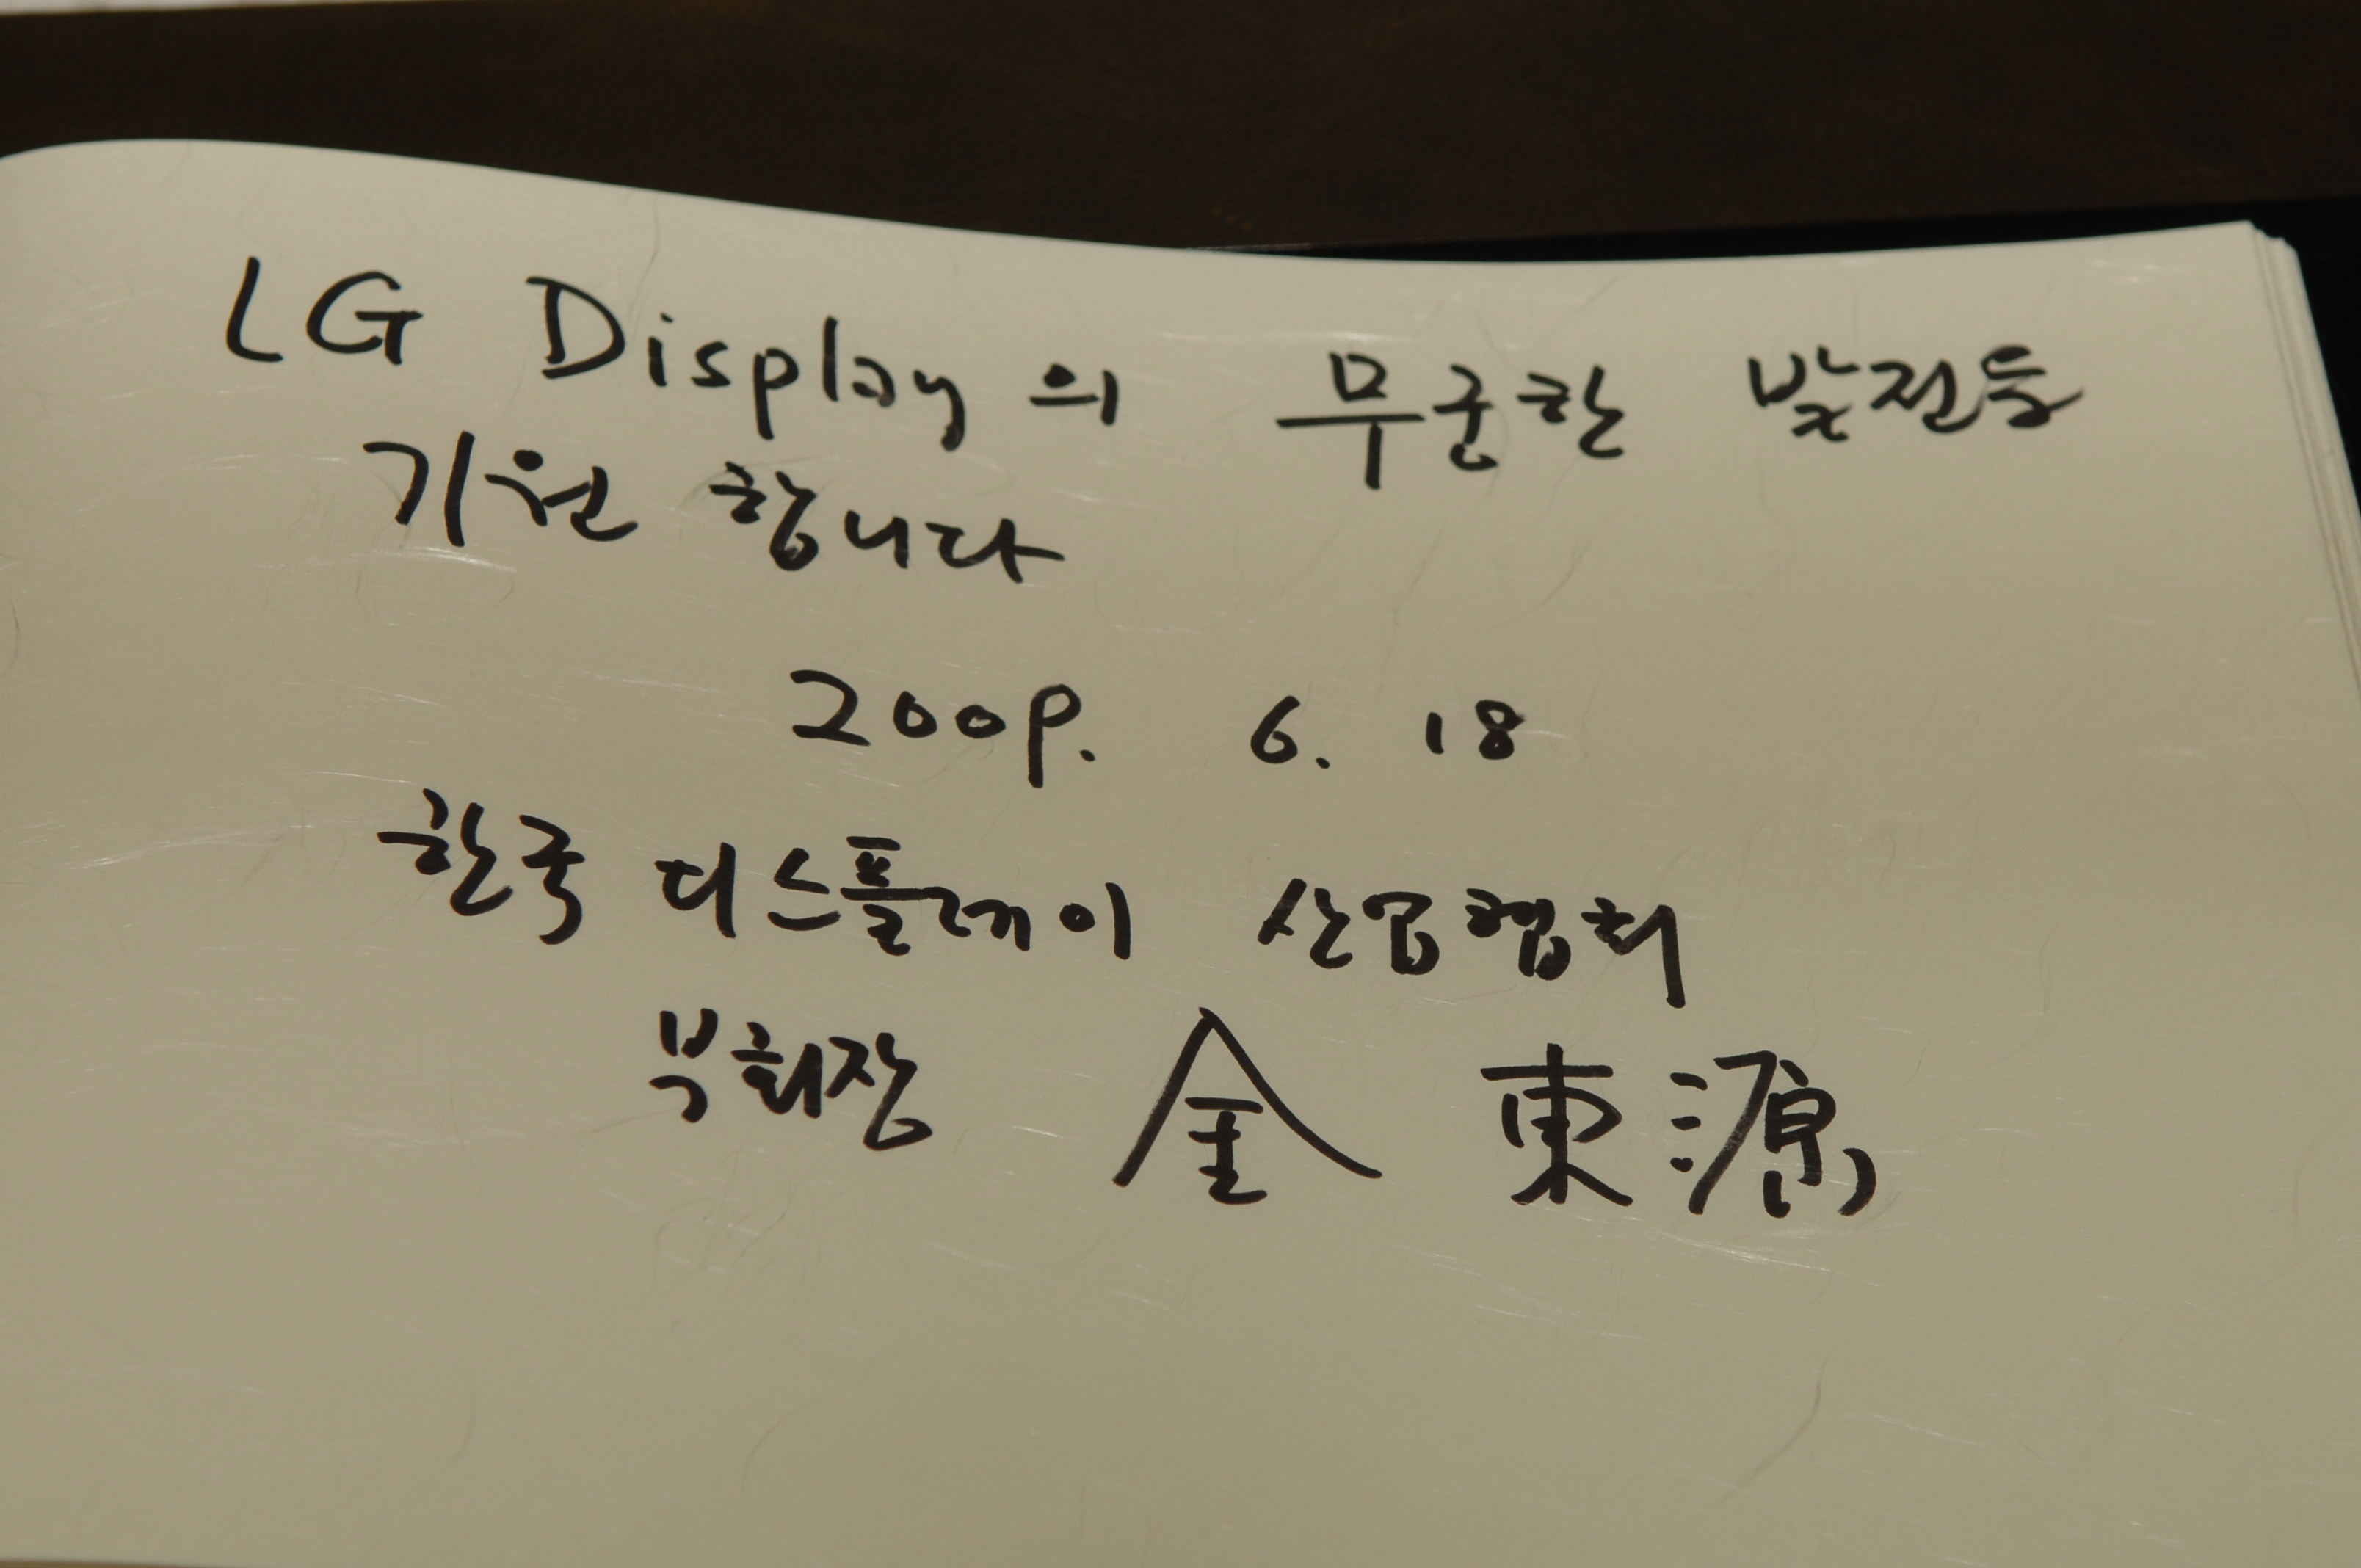 LG Display의 무궁한 발전을
기원 합니다
2009. 6. 18
한국 디스플레이 산업협회
부회장 金 東 源